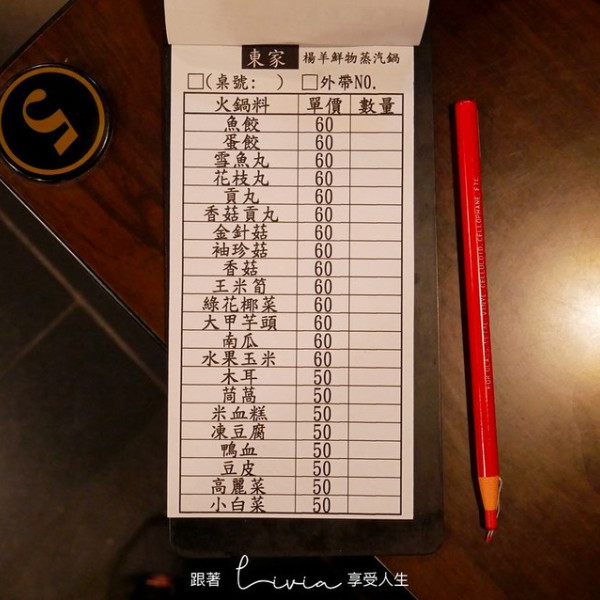 東家 楊羊鮮物蒸汽鍋
(桌號: ) 外帶NO.
火鍋料 單價 數量
魚餃 60
蛋餃 60
雪魚丸 60
花枝丸 60
貢丸 60
香菇貢丸 60
金針菇 60
袖珍菇 60
香菇 60
王米筍 60
綠花椰菜 60
大甲芋頭 60
南瓜 60
水果玉米 60
木耳 50
茼萵 50
米血糕 50
凍豆腐 50
鴨血 50
豆皮 50
高麗菜 50
小白菜 50
5
跟著 Livia 享受人生